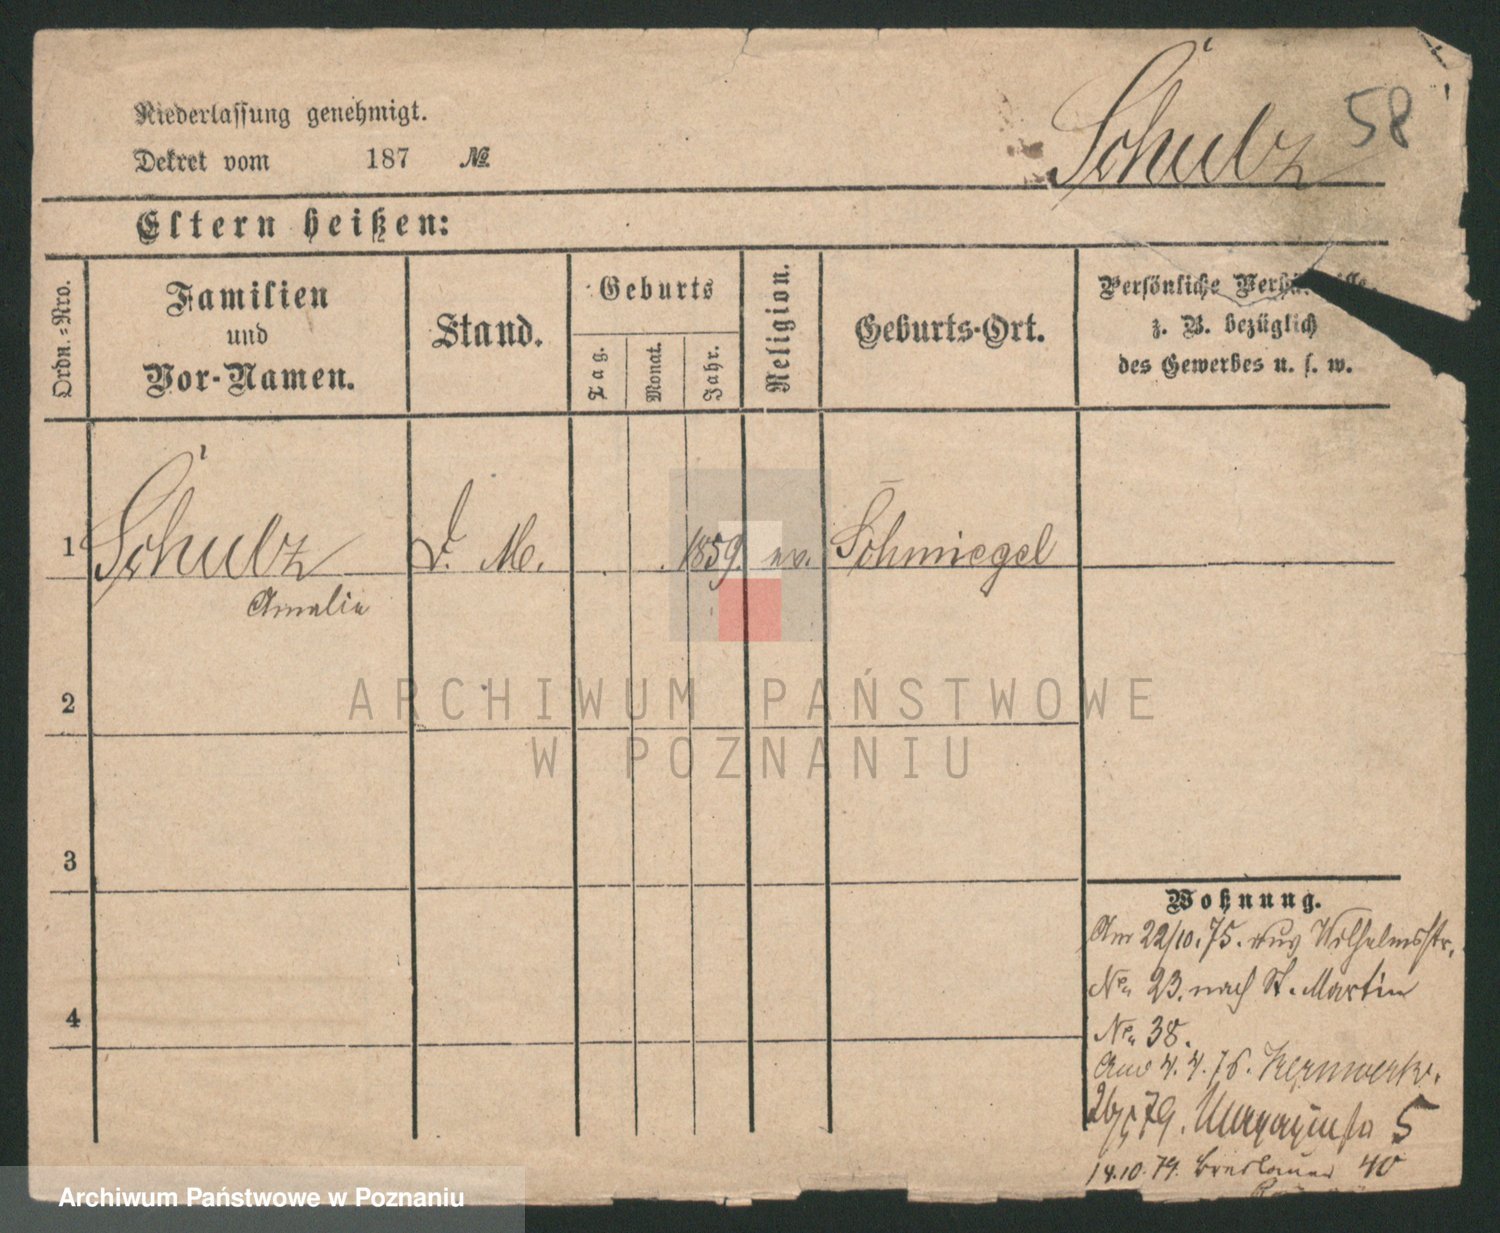 58
Niederlassung genehmigt.
Dekret vom 187 №
Schulz
Eltern heißen:
Ordn.-Nro.
Familien
und
Vor-Namen.
Stand.
Geburts
Tag.
Monat.
Jahr.
Religion.
Geburts-Ort.
Persönliche
z. B. bezüglich
des Gewerbes u. s. w.
1 Schulz D. M. 1859. ev. Schmiegel
Amalie
2
ARCHIWUM PAŃSTWOWE
W POZNANIU
3
4
Wohnung.
Am 22/10.75. aus Wilhelmsstr.
No. 23. nach St. Martin
No. 38.
4. 4. 76. Kernwerk.
79. 5
14.10.79. Breslauer 40
Archiwum Państwowe w Poznaniu